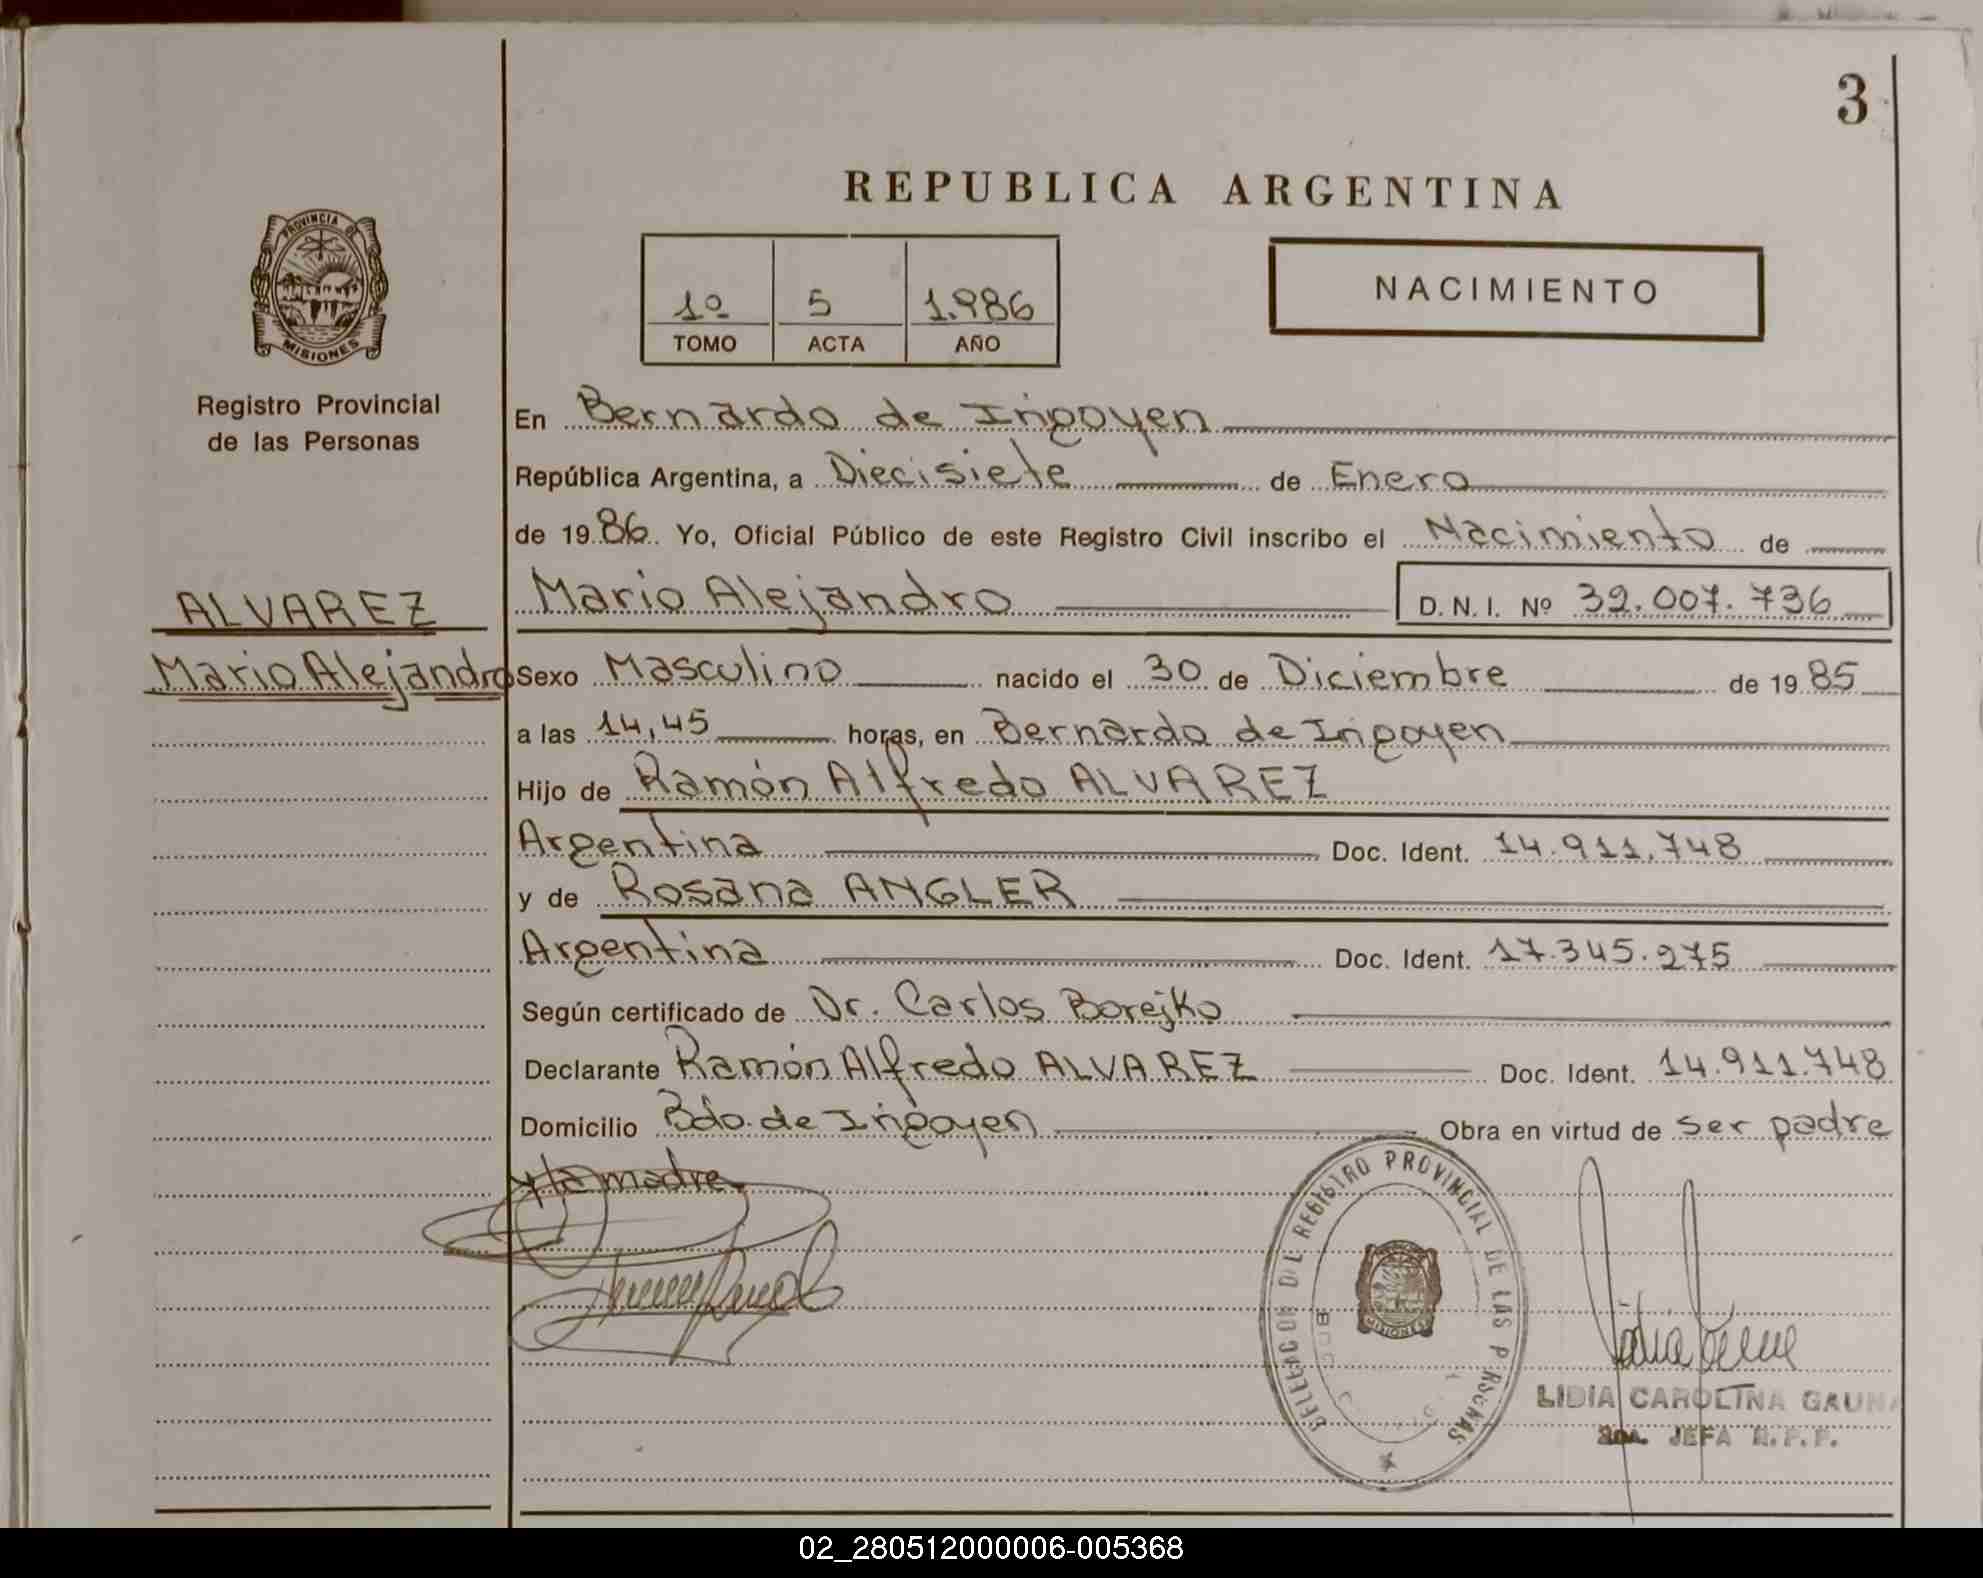 3
REPUBLICA ARGENTINA
PROVINCIA DE
MISIONES
Registro Provincial
de las Personas
1º 5 1.986
TOMO ACTA AÑO
NACIMIENTO
En Bernardo de Irigoyen
República Argentina, a Diecisiete de Enero
de 19 86 Yo, Oficial Público de este Registro Civil inscribo el Nacimiento de
ALVAREZ
Mario Alejandro
Mario Alejandro D.N.I. Nº 32.007.736
Sexo Masculino nacido el 30 de Diciembre de 19 85
a las 14,45 horas, en Bernardo de Irigoyen
Hijo de Ramón Alfredo ALVAREZ
Argentina Doc. Ident. 14.911.748
y de Rosana ANGLER
Argentina Doc. Ident. 17.345.275
Según certificado de Dr. Carlos Borejko
Declarante Ramón Alfredo ALVAREZ Doc. Ident. 14.911.748
Domicilio Bdo. de Irigoyen Obra en virtud de ser padre
y la madre.
REGISTRO PROVINCIAL DE LAS P RSONAS
LIDIA CAROLINA GAUNA
JEFA R.P.P.
02_280512000006-005368